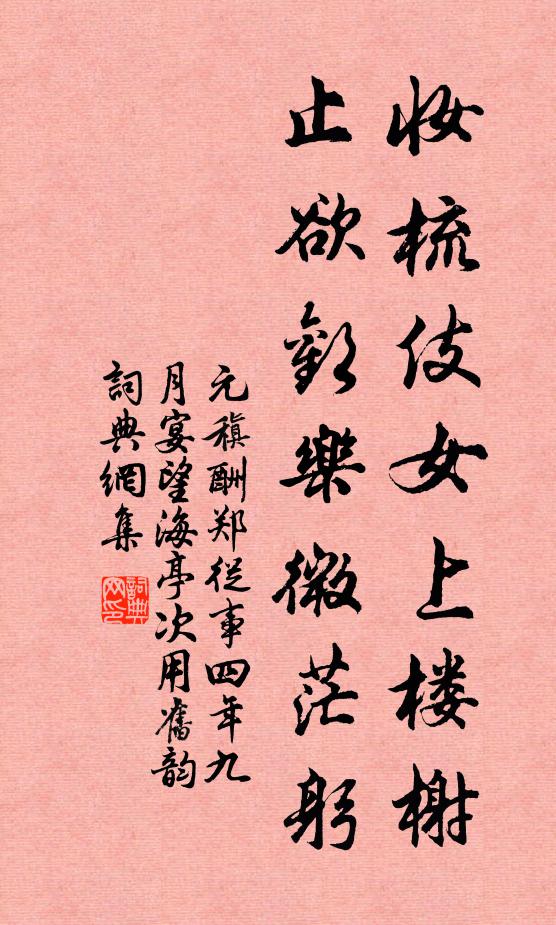 妆梳伎女上楼榭
止欲歡樂微茫躬
元稹酬郑從事四年九
月宴望海亭次用舊韵
詞典網集
詞典網印